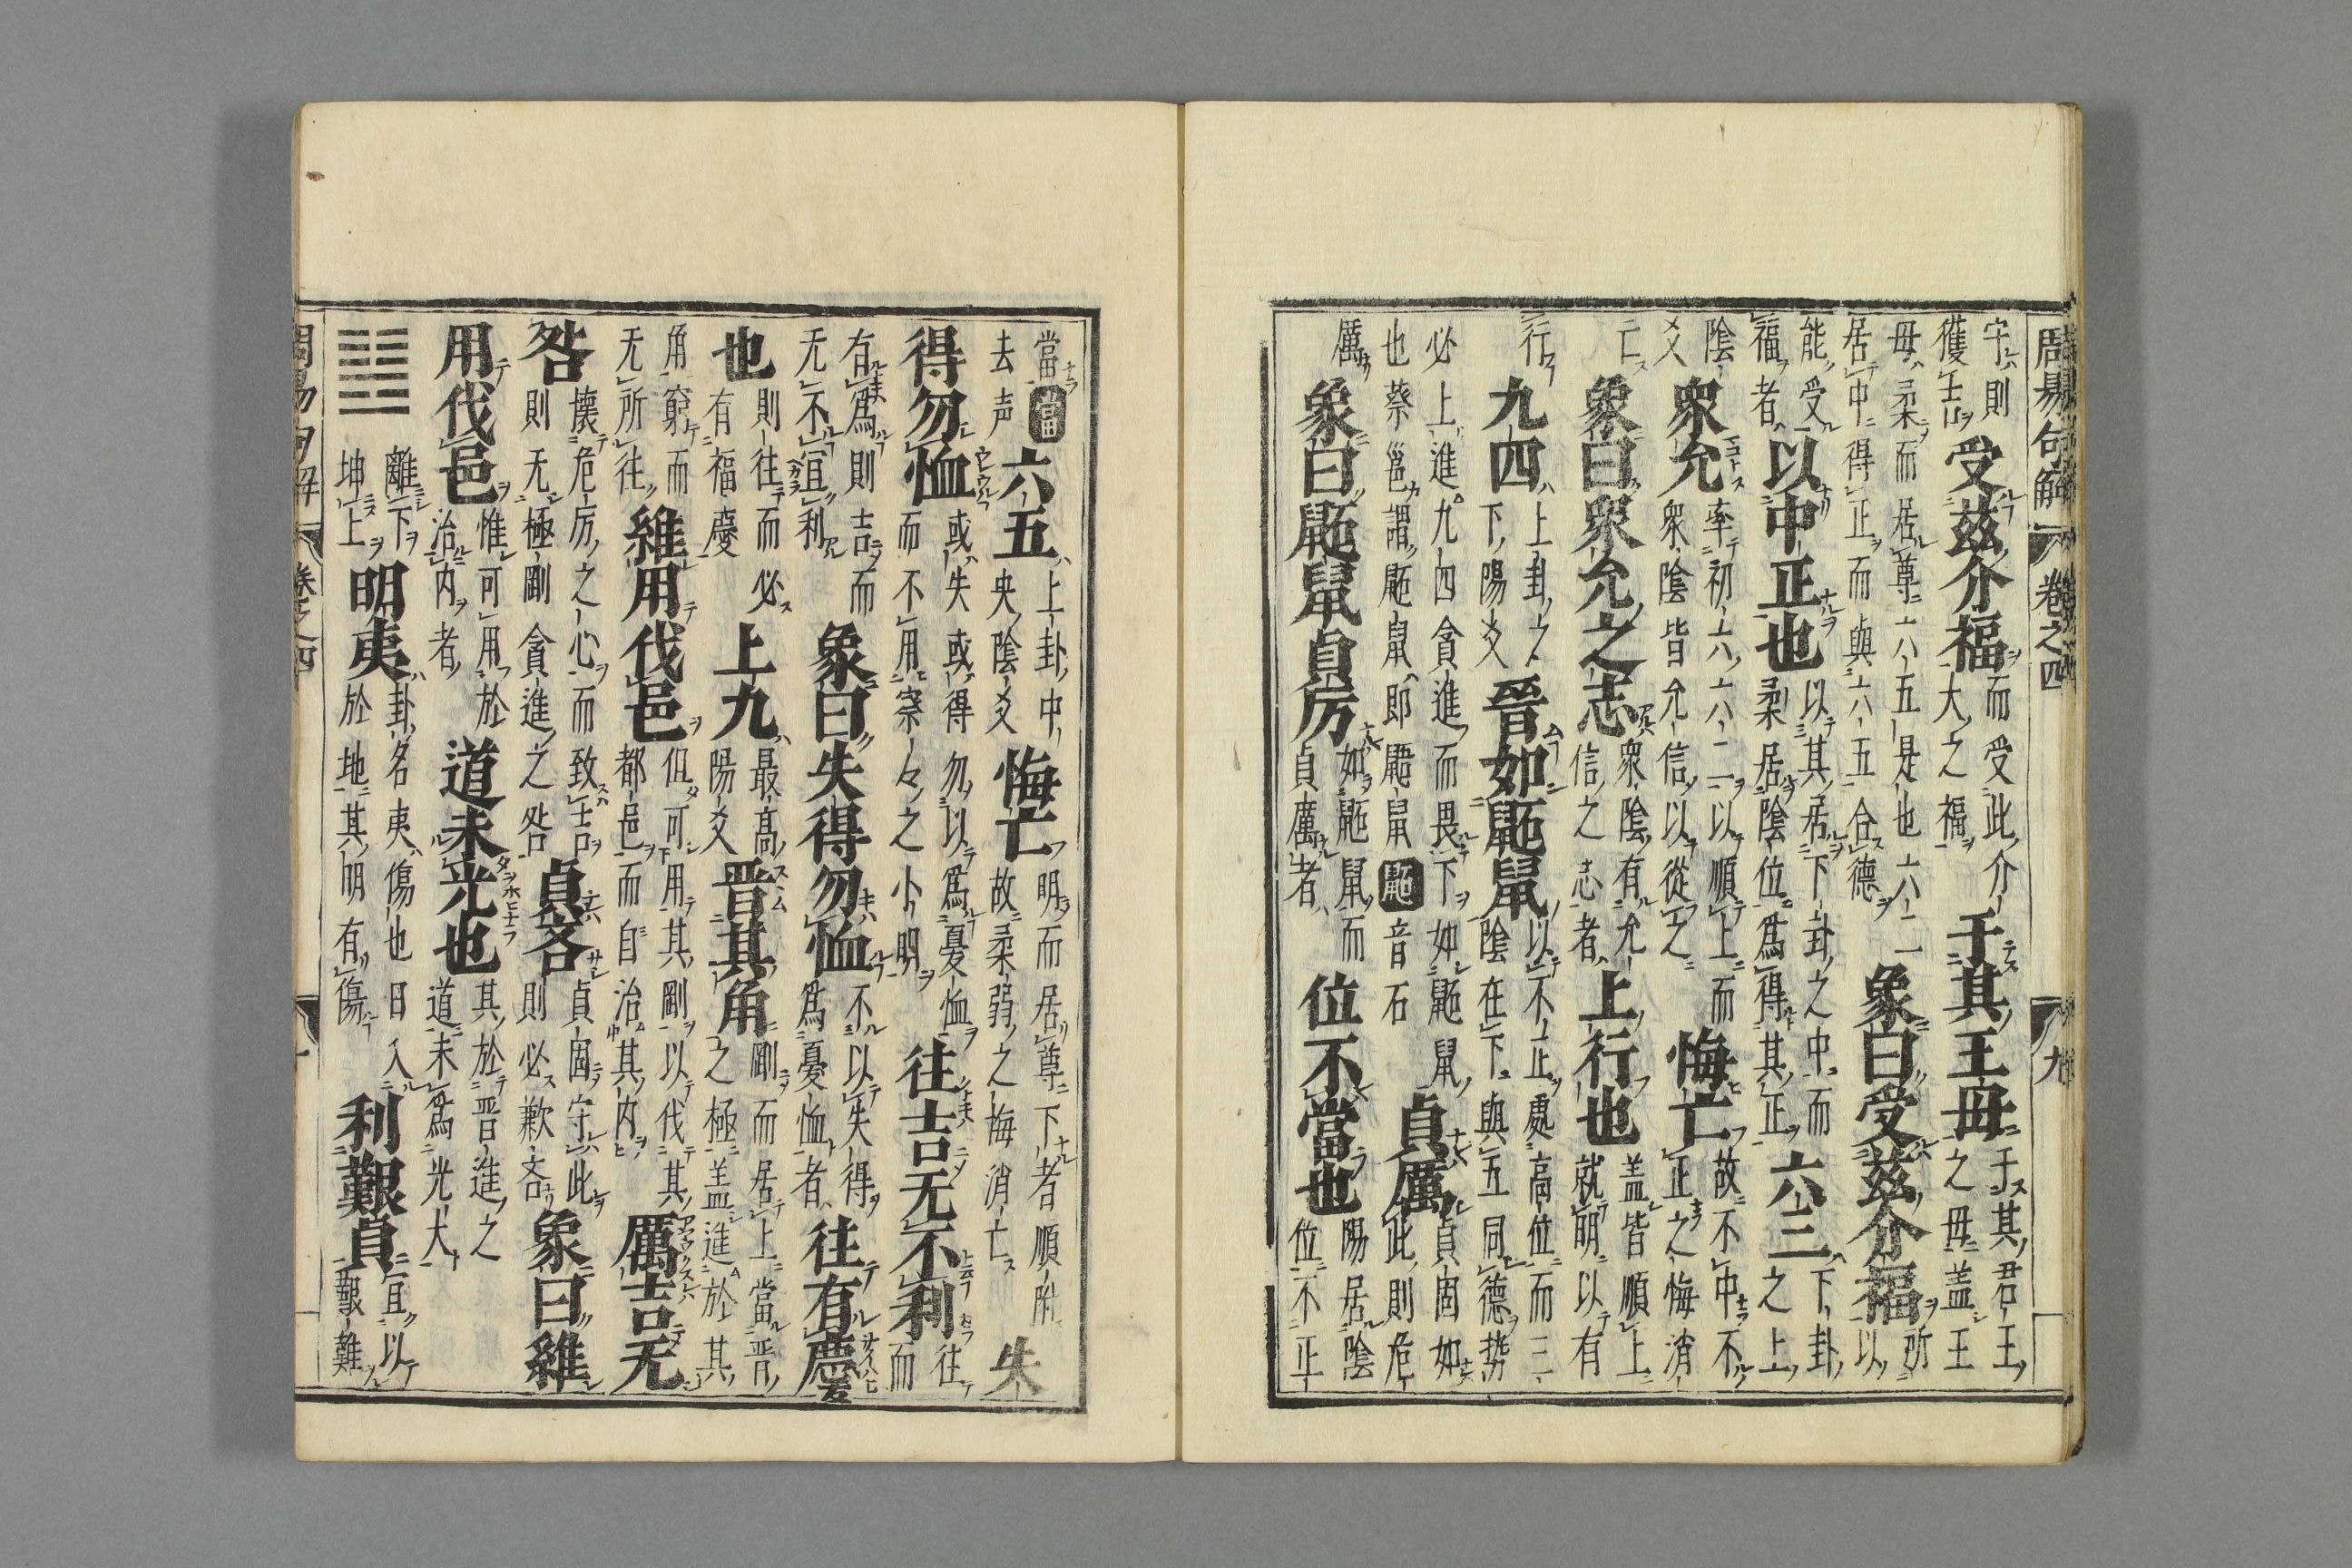 周易句解 卷之四 九
守則獲吉受茲介福而受此介大之福于其王母于其君王之母盖王
母柔而居尊六五是也六二居中得正而與六五合德象曰受茲介福所以
能受福者以中正也以其居下卦之中而柔居陰位為得其正六三下卦之上
陰爻衆允率初六六二以順上而衆陰皆允信以從之悔亡故不中不正之悔消
亡象曰衆允之志衆陰有允信之志者上行也盖皆順上就明以有
行九四上卦之下陽爻晉如鼫鼠以不正處高位而三陰在下與五同德势
必上進九四貪進而畏下如鼫鼠也蔡邕謂鼫鼠即鼯鼠鼫音石貞厲貞固如此則危
厲象曰鼫鼠貞厉如鼫鼠而貞厲者位不當也陽居陰位不正
當當去声六五上卦中央陰爻悔亡明而居尊下者順附故柔弱之悔消亡失
得勿恤或失或得勿以為憂恤而不用察々之小明往吉无不利往而
有為則吉而无不宜利象曰失得勿恤不以失得為憂恤者往有慶
也則往而必有福慶上九最高陽爻晋其角剛而居上當晋之極盖進於其
角窮而无所往維用伐邑但可用其剛以伐其都邑而自治其内厲吉无
咎懐危厉之心而致吉則无極剛貪進之咎貞吝貞固守此則必歉吝象曰維
用伐邑惟可用於治内者道未光也其於晋進之道未為光大
䷣離下坤上明夷卦名夷傷也日入於地其明有傷利艱貞宜以艱難
周易句解 卷之四 十